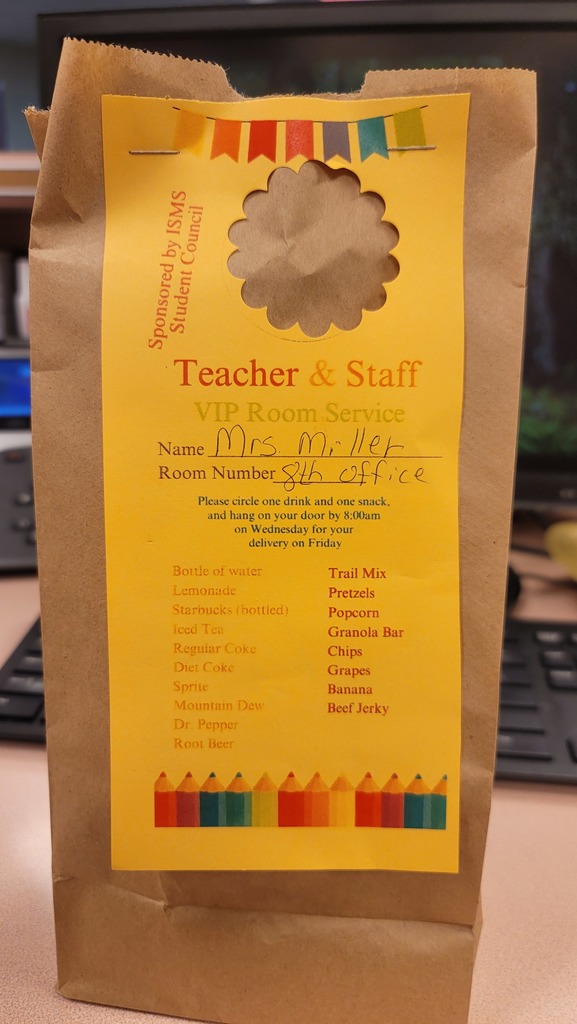 Sponsored by ISMS
Student Council
Teacher & Staff
VIP Room Service
Name Mrs. Miller
Room Number 8th office
Please circle one drink and one snack,
and hang on your door by 8:00am
on Wednesday for your
delivery on Friday
Bottle of water
Lemonade
Starbucks (bottled)
Iced Tea
Regular Coke
Diet Coke
Sprite
Mountain Dew
Dr. Pepper
Root Beer
Trail Mix
Pretzels
Popcorn
Granola Bar
Chips
Grapes
Banana
Beef Jerky